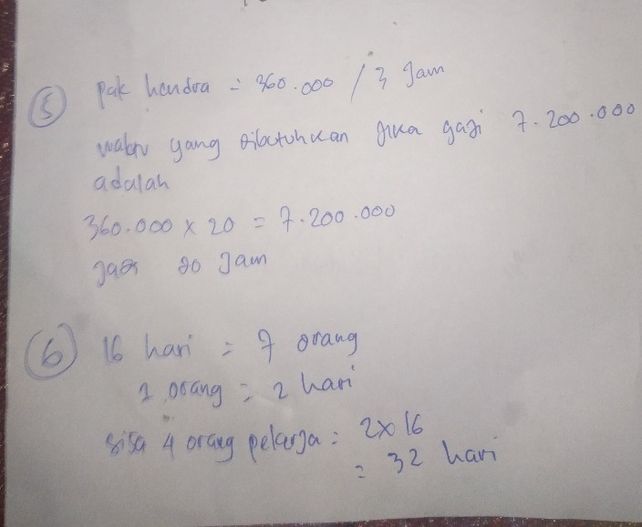 ⑤ pak hendra = 360.000 / 3 Jam
waktu yang dibutuhkan jika gaji 7.200.000
adalah
360.000 x 20 = 7.200.000
jadi 20 Jam
⑥ 16 hari = 7 orang
1 orang = 2 hari
sisa 4 orang pekerja = 2x16
= 32 hari